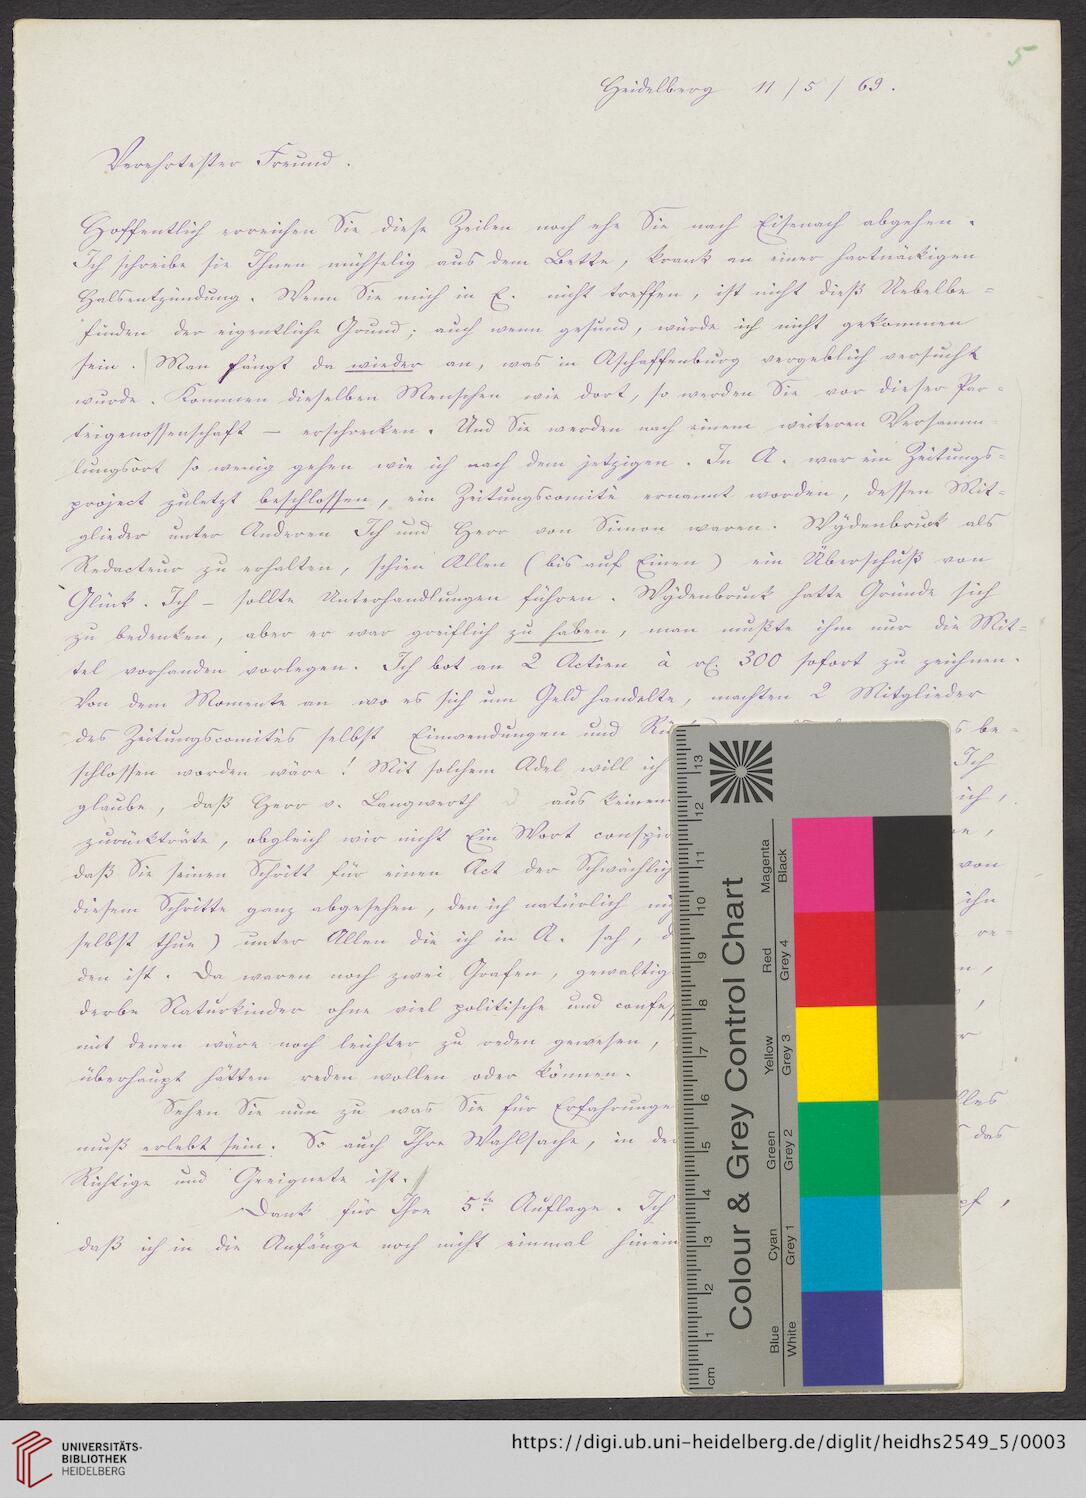 5
Heidelberg 11 / 5 / 69.
Verehrtester Freund.
Hoffentlich erreichen Sie diese Zeilen noch ehe Sie nach Eisenach abgehen.
Ich schreibe sie Ihnen mühselig aus dem Bette, krank an einer hartnäckigen
Halsentzündung. Wenn Sie mich in E. nicht treffen, ist nicht dieß Uebelbe=
finden der eigentliche Grund; auch wenn gesund, würde ich nicht gekommen
sein. Man fängt da wieder an, was in Aschaffenburg vergeblich versucht
wurde. Kommen dieselben Menschen wie dort, so werden Sie vor dieser Par=
teigenossenschaft – erschrecken. Und Sie werden nach einem weiteren Versamm=
lungsort so wenig gehen wie ich nach dem jetzigen. In A. war ein Zeitungs=
project zuletzt beschlossen, ein Zeitungscomité ernannt worden, dessen Mit=
glieder unter Anderen Ich und Herr von Simon waren. Wydenbruck als
Redacteur zu erhalten, schien Allen (bis auf Einen) ein Überschuß von
Glück. Ich – sollte Unterhandlungen führen. Wydenbruck hatte Gründe sich
zu bedenken, aber er war greiflich zu haben, man mußte ihm nur die Mit=
tel vorhanden vorlegen. Ich bot an 2 Actien à rl. 300 sofort zu zeichnen.
Von dem Momente an wo es sich um Geld handelte, machten 2 Mitglieder
des Zeitungscomités selbst Einwendungen und be=
schlossen worden wäre! Mit solchem Adel will ich Ich
glaube, daß Herr v. Langwerth aus keinem ich,
zurückträte, obgleich wir nicht Ein Wort
daß Sie seinen Schritt für einen Act der von
diesem Schritte ganz abgesehen, den ich natürlich ihn
selbst thue) unter Allen die ich in A. sah, re=
den ist. Da waren noch zwei Grafen,
derbe Naturkinder ohne viel politische und
mit denen wäre noch leichter zu reden gewesen,
überhaupt hätten reden wollen oder können.
Sehen Sie nun zu was Sie für
muß erlebt sein. So auch Ihre Wahlsache, in das
Richtige und Geeignete ist.
Dank für Ihre 5te Auflage. Ich
daß ich in die Anfänge noch nicht einmal
Colour & Grey Control Chart
Blue Cyan Green Yellow Red Magenta
White Grey 1 Grey 2 Grey 3 Grey 4 Black
cm 1 2 3 4 5 6 7 8 9 10 11 12 13
UNIVERSITÄTS-
BIBLIOTHEK
HEIDELBERG
https://digi.ub.uni-heidelberg.de/diglit/heidhs2549_5/0003